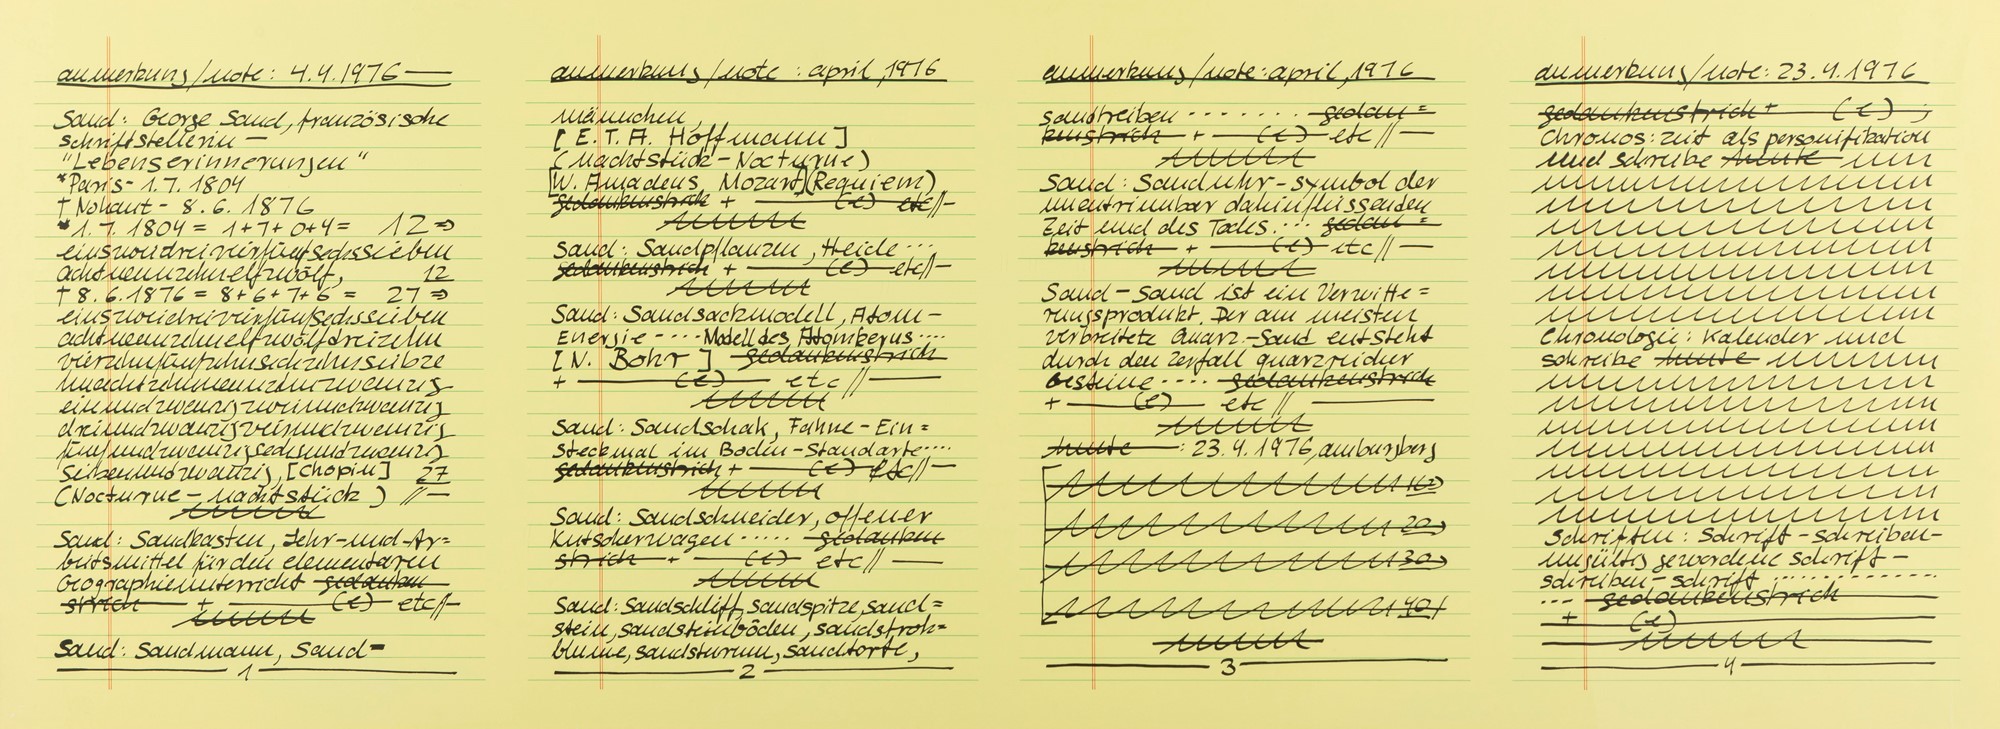 anmerkung/note: 4.4.1976
Sand: George Sand, französische
schriftstellerin —
"Lebenserinnerungen"
*Paris - 1.7.1804
† Nohant - 8.6.1876
*1.7.1804 = 1+7+0+4 = 12 ⇒
einszwodreivierfünfsechssieben
achtneunzehnelfzwölf, 12
† 8.6.1876 = 8+6+7+6 = 27 ⇒
einszweidreivierfünfsechssieben
achtneunzehnelfzwölfdreizehn
vierzehnfünfzehnsechzehnsiebze
hnachtzehnneunzehnzwanzig
einundzwanzigzweiundzwanzig
dreiundzwanzigvierundzwanzig
fünfundzwanzigsechsundzwanzig
siebenundzwanzig, [Chopin] 27
(Nocturne - Nachtstück) //—
Sand: Sandkasten, Lehr-und-Ar=
beitsmittel für den elementaren
Geographieunterricht gedanken
strich + — (e) — etc//—
Sand: Sandmann, Sand=
1
anmerkung/note: april, 1976
männchen,
[E.T.A. Hoffmann]
(Nachtstück - Nocturne)
[W. Amadeus Mozart] (Requiem)
gedankenstrich + — (e) — etc//—
Sand: Sandpflanzen, Heide ...
gedankenstrich + — (e) — etc//—
Sand: Sandsackmodell, Atom-
Energie .... Modell des Atomkerns ...
[N. Bohr] gedankenstrich
+ — (e) — etc //—
Sand: Sandschak, Fahne - Ein=
steckmal im Boden - Standarte ....
gedankenstrich + — (e) — etc//—
Sand: Sandschneider, offener
Kutscherwagen ..... gedanken
strich + — (e) — etc//—
Sand: Sandschliff, sandspitze, sand=
stein, sandsteinböden, sandstroh=
blume, sandsturm, sandtorte,
2
anmerkung/note: april, 1976
sandtreiben ........ gedan=
kenstrich + — (e) — etc//—
Sand: Sanduhr - symbol der
unentrinnbar dahinfliessenden
Zeit und des Todes .... gedan=
kenstrich + — (e) — etc//—
Sand - Sand ist ein Verwitte=
rungsprodukt. Der am meisten
verbreitete Quarz-Sand entsteht
durch den Zerfall quarzreicher
Gesteine ..... gedankenstrich
+ — (e) — etc //—
heute —: 23.4.1976, amburgberg
10)
20)
30)
40)
3
anmerkung/note: 23.4.1976
gedankenstrich + (e) ;
Chronos: zeit als personifikation
und schreibe heute
Chronologie: Kalender und
schreibe heute
Schriften: Schrift - schreiben -
ungültig gewordene Schrift -
schreiben - schrift ..............
... gedankenstrich
+ (e)
4